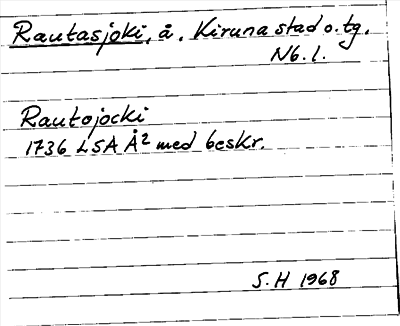 Rautasjoki, å. Kiruna stad o. tg.
Nb. l.
Rautojocki
1736 LSA Å² med beskr.
S. H 1968